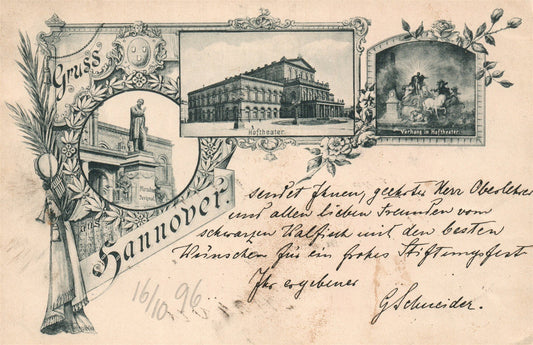 Gruss
aus
Hannover.
Hoftheater.
Vorhang im Hoftheater.
Marschner
Denkmal
sendet Ihnen, geehrter Herr Oberlehrer
und allen lieben Freunden vom
schwarzen Walfisch mit den besten
Wünschen für ein frohes Stiftungsfest
Ihr ergebener
G Schneider.
16/10 96